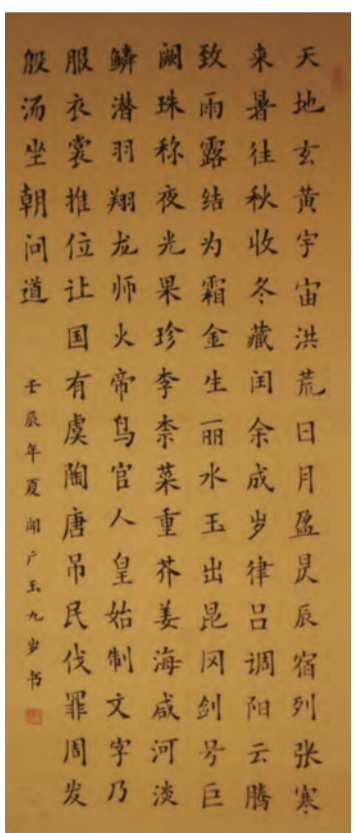 天地玄黃宇宙洪荒日月盈昃辰宿列张寒
来暑往秋收冬藏闰余成岁律吕调阳云腾
致雨露结为霜金生丽水玉出昆冈剑号巨
阙珠称夜光果珍李柰菜重芥姜海咸河淡
鳞潜羽翔龙师火帝鸟官人皇始制文字乃
服衣裳推位让国有虞陶唐吊民伐罪周发
殷汤坐朝问道
壬辰年夏闻广玉九岁书